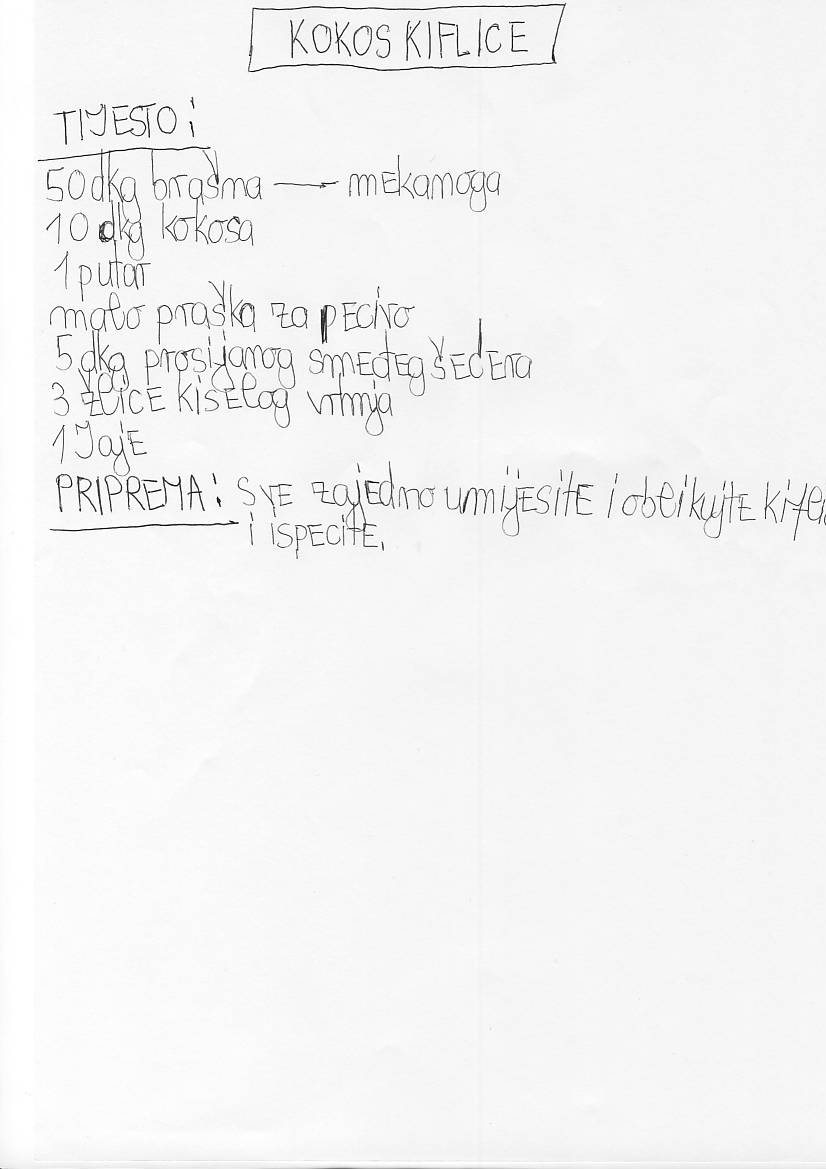 KOKOS KIFLICE
TIJESTO:
50 dkg brašna — mekanoga
10 dkg kokosa
1 putar
malo praška za pecivo
5 dkg prosijanog smeđeg šećera
3 žlice kiselog vrhnja
1 Jaje
PRIPREMA: SVE zajedno umijesite i oblikujte
i ispecite.